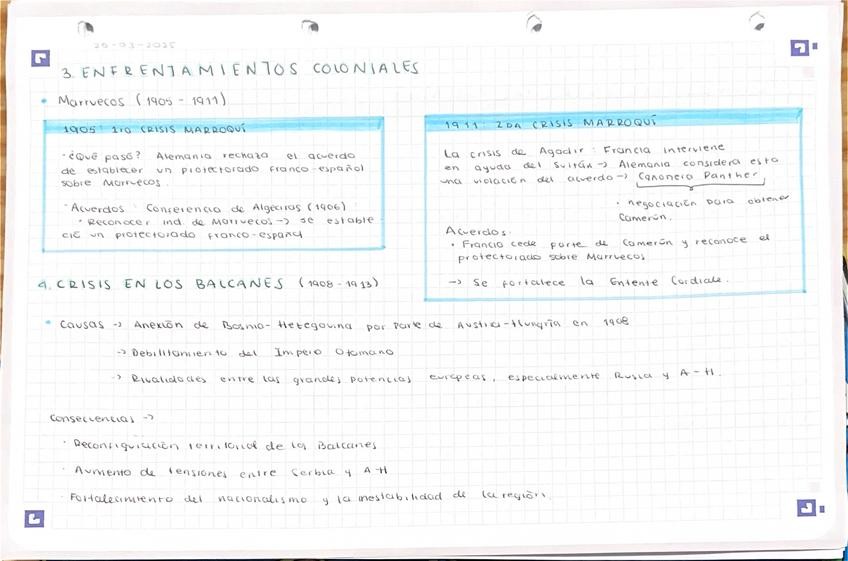 20-03-2025
3. ENFRENTAMIENTOS COLONIALES
• Marruecos (1905 - 1911)
1905: 1ra CRISIS MARROQUÍ
· ¿Qué pasó? Alemania rechaza el acuerdo
de establecer un protectorado franco-español
sobre Marruecos.
· Acuerdos: Conferencia de Algeciras (1906)
· Reconocer ind. de Marruecos -> se estable
ció un protectorado franco-español
1911: 2DA CRISIS MARROQUÍ
La crisis de Agadir: Francia interviene
en ayuda del Sultán -> Alemania considera esto
una violación del acuerdo -> Cañonero Panther
· negociación para obtener
Camerún.
Acuerdos:
· Francia cede parte de Camerún y reconoce el
protectorado sobre Marruecos
-> Se fortalece la Entente Cordiale.
4. CRISIS EN LOS BALCANES (1908 - 1913)
• Causas -> Anexión de Bosnia-Herzegovina por parte de Austria-Hungría en 1908
-> Debilitamiento del Imperio Otomano
-> Rivalidades entre las grandes potencias europeas, especialmente Rusia y A-H.
Consecuencias ->
· Reconfiguración territorial de los Balcanes
· Aumento de tensiones entre Serbia y A-H
· Fortalecimiento del nacionalismo y la inestabilidad de la región.